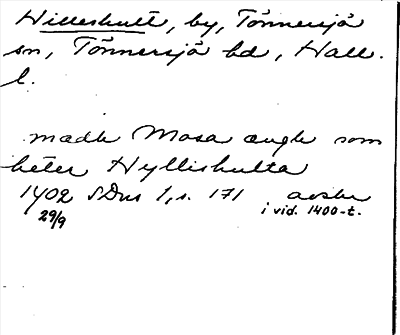 Hilleshult, by, Tönnersjö
sn, Tönnersjö hd, Hall.
l.
medh Mosa ængh som
heter Hyllishulta
1402 SDns 1, s. 171 avskr
29/9 i vid. 1400-t.